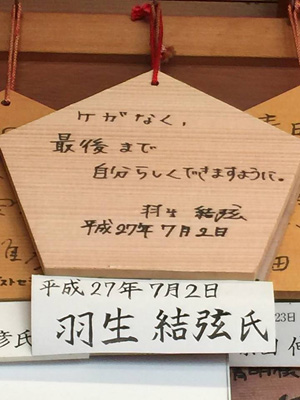 ケガなく、
最後まで
自分らしくできますように。
羽生 結弦
平成27年7月2日
平成27年7月2日
羽生 結弦氏
彦氏
23日